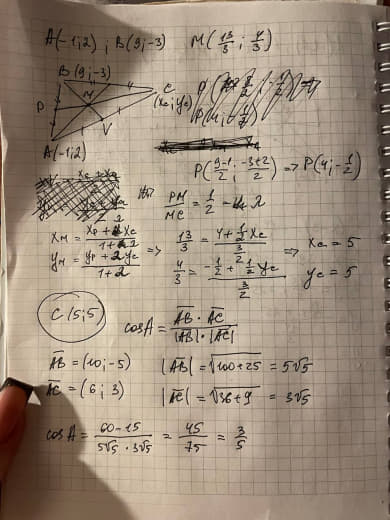 A(-1;2) ; B(9;-3) M(13/3 ; 4/3)
B(9;-3)
M
C
(xc;yc)
P
V
A(-1;2)
P((9-1)/2 ; (-3+2)/2) => P(4;-1/2)
PM/MC = 1/2 - λ
xM = (xP + λxC)/(1+λ) => 13/3 = (4 + 1/2 xC)/(3/2) => xC = 5
yM = (yP + λyC)/(1+λ) 4/3 = (-1/2 + 1/2 yC)/(3/2) yC = 5
C(5;5) cosA = (AB · AC)/(|AB|·|AC|)
AB = (10;-5) |AB| = √(100+25) = 5√5
AC = (6;3) |AC| = √(36+9) = 3√5
cosA = (60-15)/(5√5 · 3√5) = 45/75 = 3/5